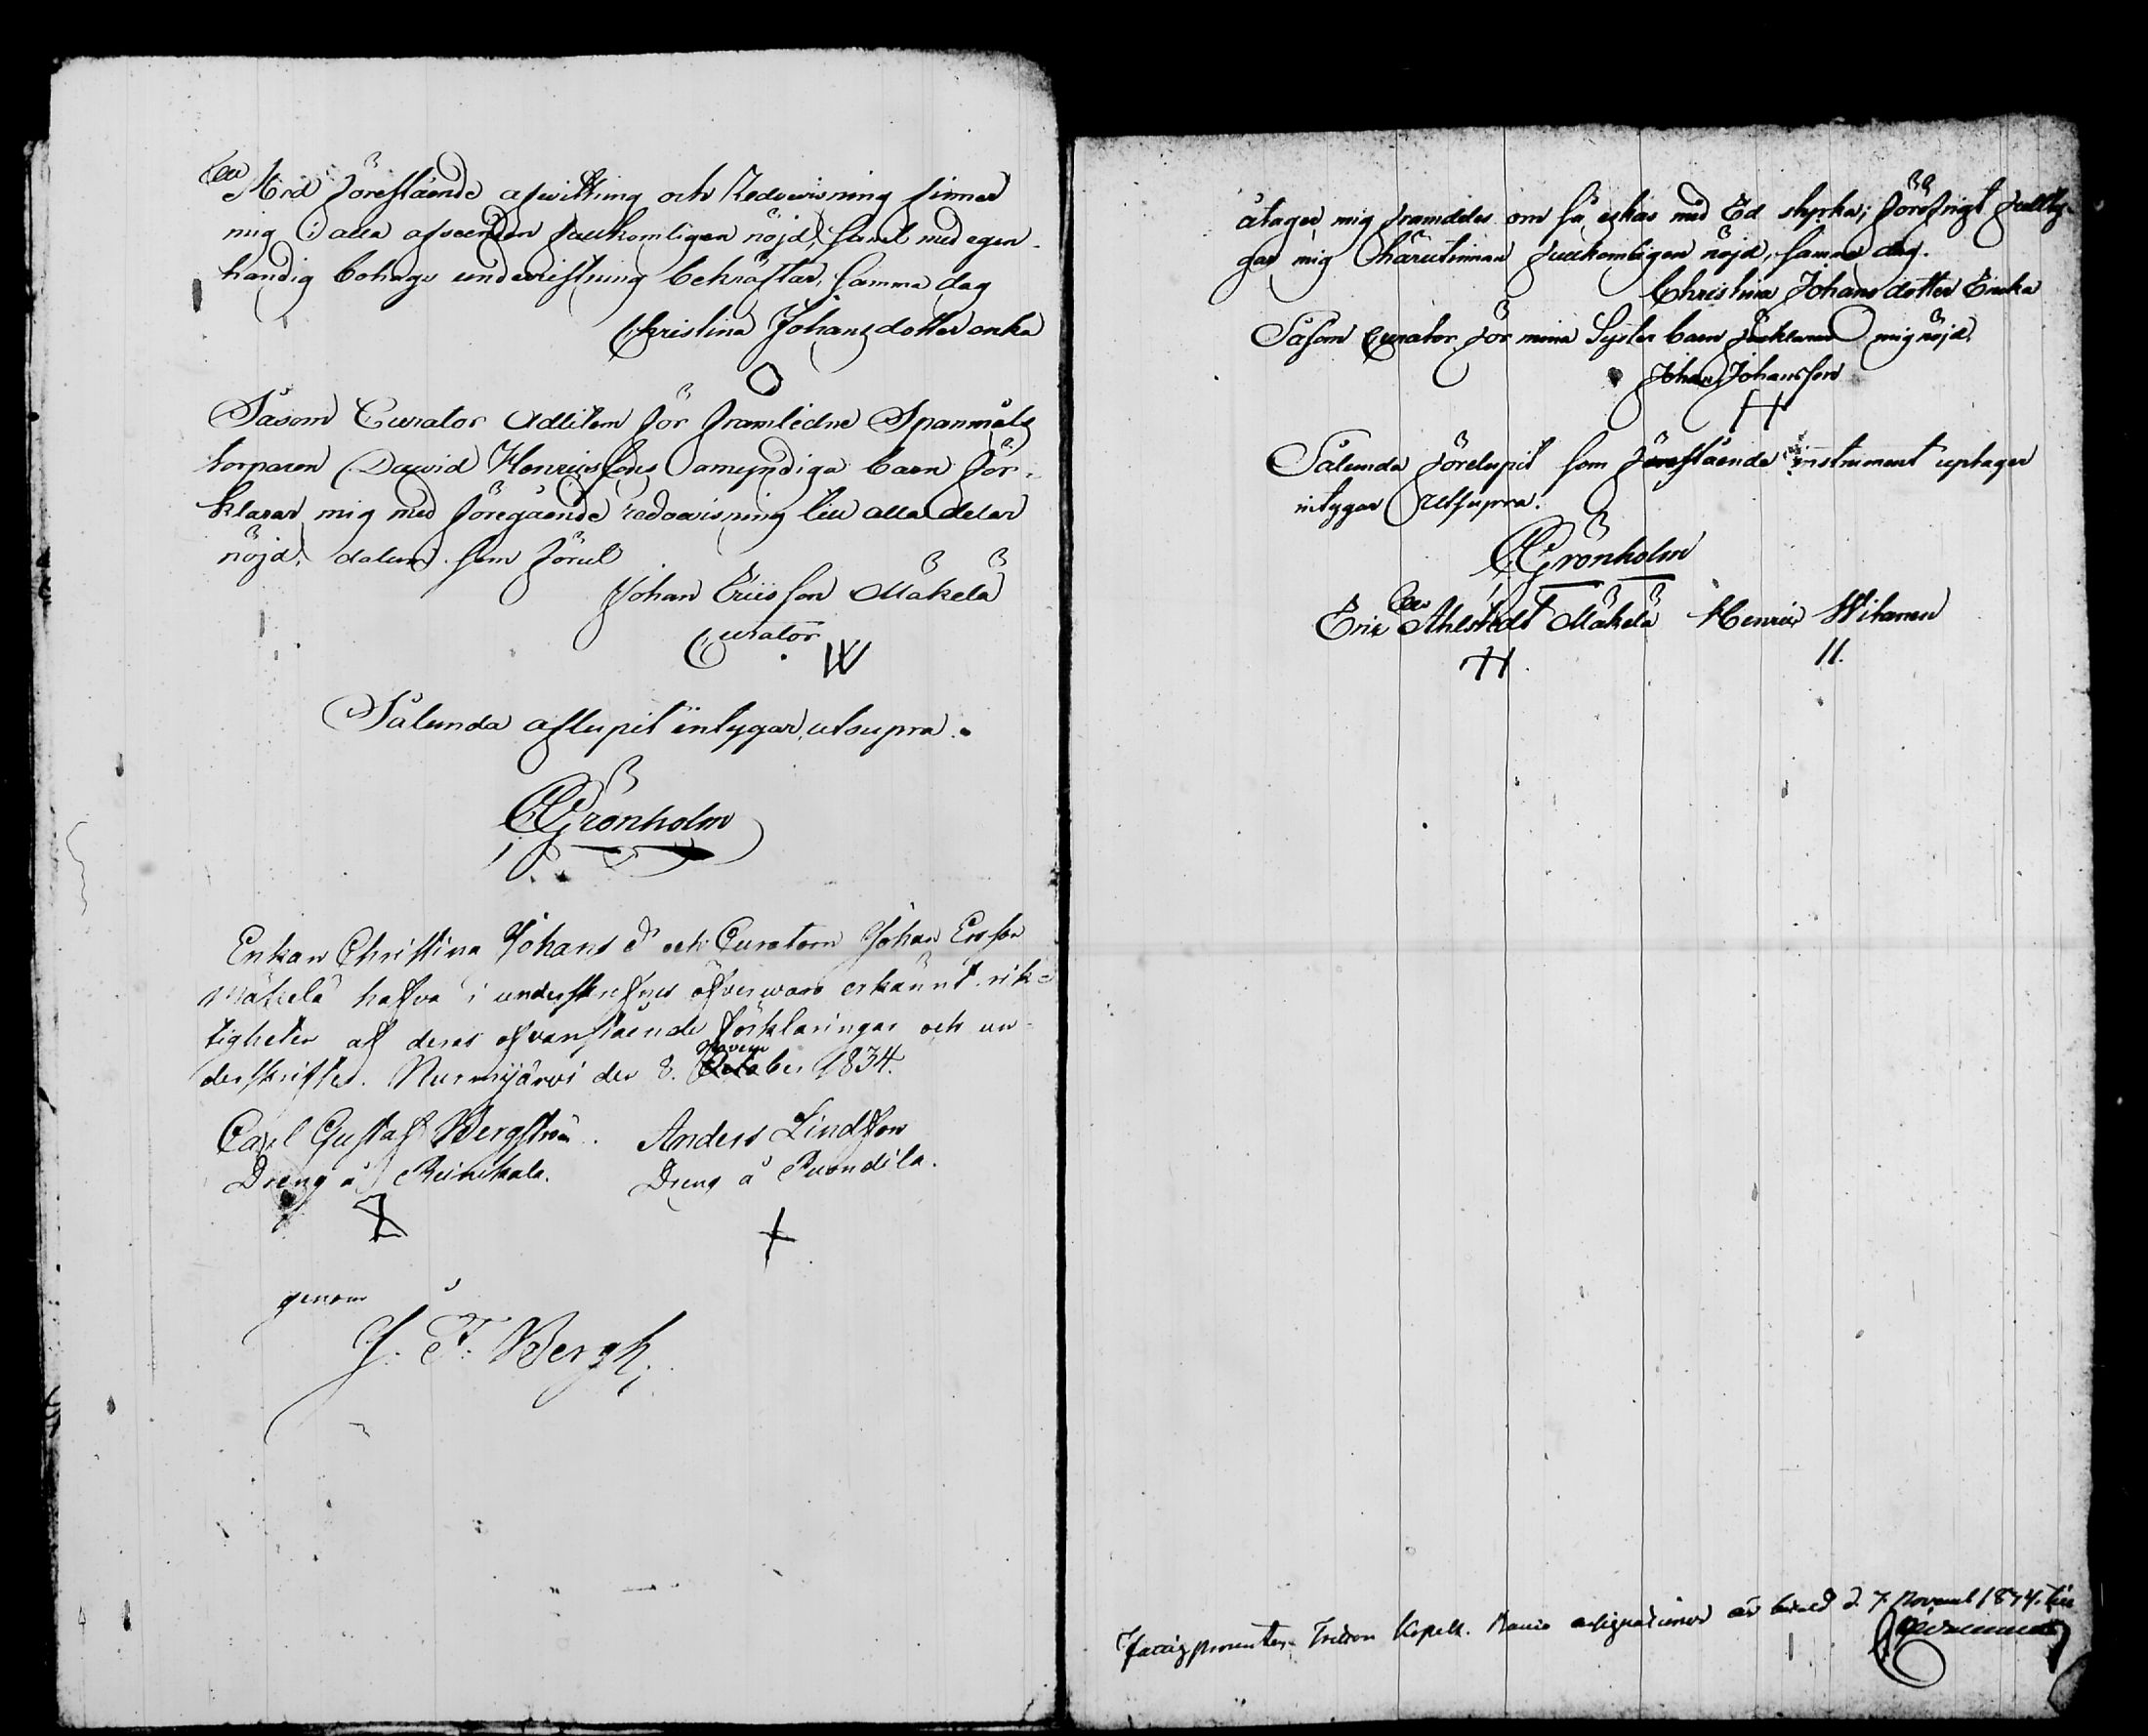 Med förestående afwittring och Redowisning finner
mig i alla afseenden fullkomligen nöjd, hwilket med egen-
händig bohags underskrifning bekräftar, samma dag
Christina Johansdotter enka
Såsom Curator Adlitem för framledne Spanmåls
torparen David Henricssons omyndiga barn för-
klarar mig med föregående redowisning till alla delar
nöjd, datum som förut
Johan Ericsson Mäkelä
Curator
Sålunda aflupit intygar, utsupra.
Grönholm
Enkan Christina Johans dr och Curatorn Johan Ersson
Mäkelä hafva i underskrefnes öfverwaro erkännt rik-
tigheten af deras ofvanstående förklaringar och un-
derskrifter. Nurmijärvi den 8. November 1834.
Carl Gustaf Bergström. Anders Lindsson
Dreng å Reinikala. Dreng å Puondila.
genom
J. F. Bergh,
åtager mig framdeles om så äskas med Ed styrka; föröfrigt
gar mig härutinnan fullkomligen nöjd, samma dag.
Christina Johansdotter Encka
Såsom Curator för mina Syster barn förklarar mig nöjd,
Johan Johansson
Sålunda förelupit som förestående instrument uptager
intygar Utsupra.
Grönholm
Eric Ahlstedt Mäkelä Henric Witanen
Fattigprocenten Kapell är betald d. 7 Novemb 1834.